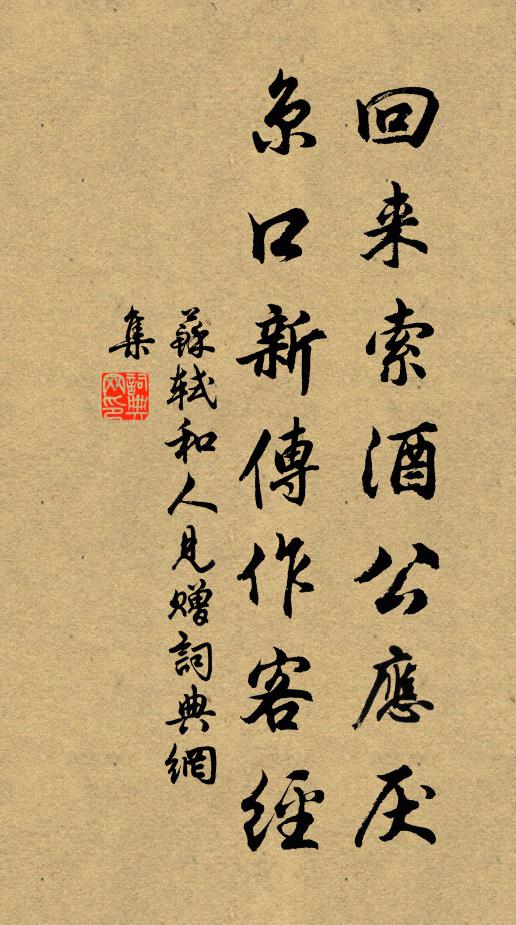 回来索酒公應厌
京口新傳作客經
蘇轼和人見贈詞典網
集
詞典網印